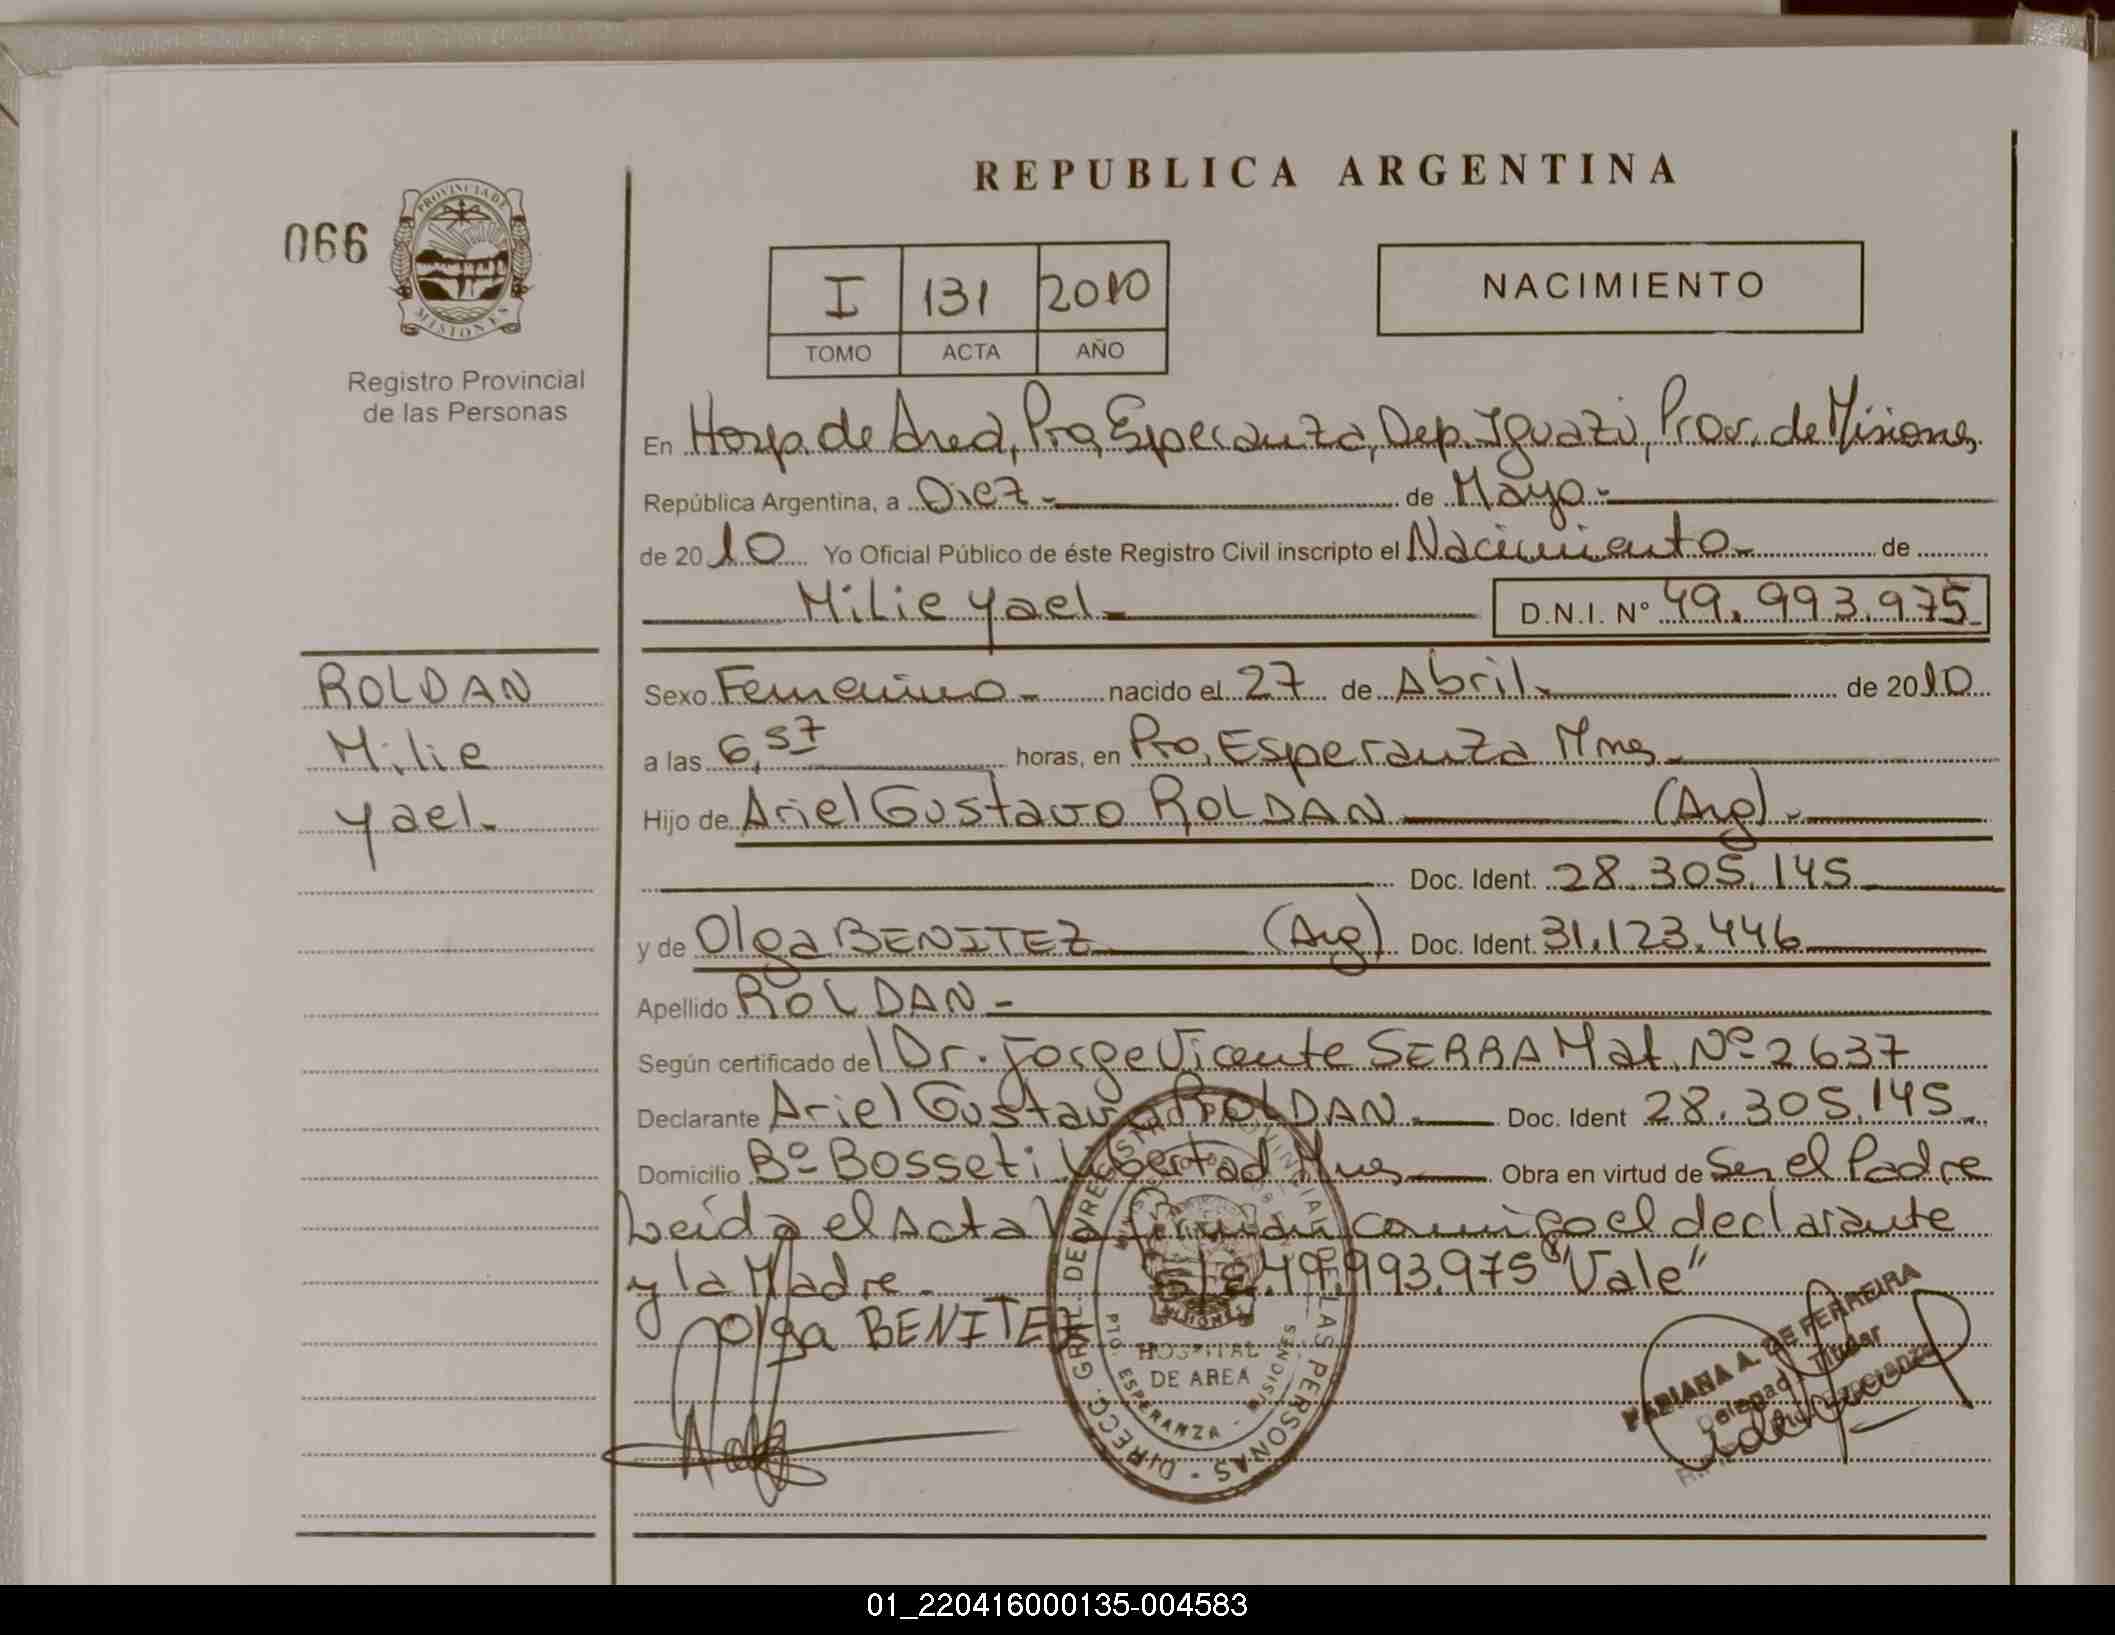 REPUBLICA ARGENTINA
066
PROVINCIA DE
MISIONES
Registro Provincial
de las Personas
I 131 2010
TOMO ACTA AÑO
NACIMIENTO
En Hosp. de Area, Pto, Esperanza, Dep. Iguazú, Prov. de Misiones
República Argentina, a Diez.- de Mayo.-
de 2010 Yo Oficial Público de éste Registro Civil inscripto el Nacimiento.- de
Milie Yael.- D.N.I. N° 49.993.975
ROLDAN
Milie
Yael.
Sexo Femenino.- nacido el 27 de Abril.- de 2010
a las 6,57 horas, en Pto, Esperanza Mnes.-
Hijo de Ariel Gustavo ROLDAN (Arg).-
Doc. Ident. 28.305.145
y de Olga BENITEZ (Arg) Doc. Ident. 31.123.446
Apellido ROLDAN.-
Según certificado del Dr. Jorge Vicente SERRA Mat. Nº 2637
Declarante Ariel Gustavo ROLDAN.- Doc. Ident 28.305.145.
Domicilio Bº Bosseti Libertad Mnes Obra en virtud de Ser el Padre
Leida el Acta la firman conmigo el declarante
y la Madre.- S/R.49.993.975 "Vale"
Olga BENITEZ
DIRECC. GRAL. DEL REGISTRO PROVINCIAL DE LAS PERSONAS
HOSPITAL
DE AREA
PTO. ESPERANZA - MISIONES
FABIANA A. DE FERREIRA
Delegada Titular
01_220416000135-004583